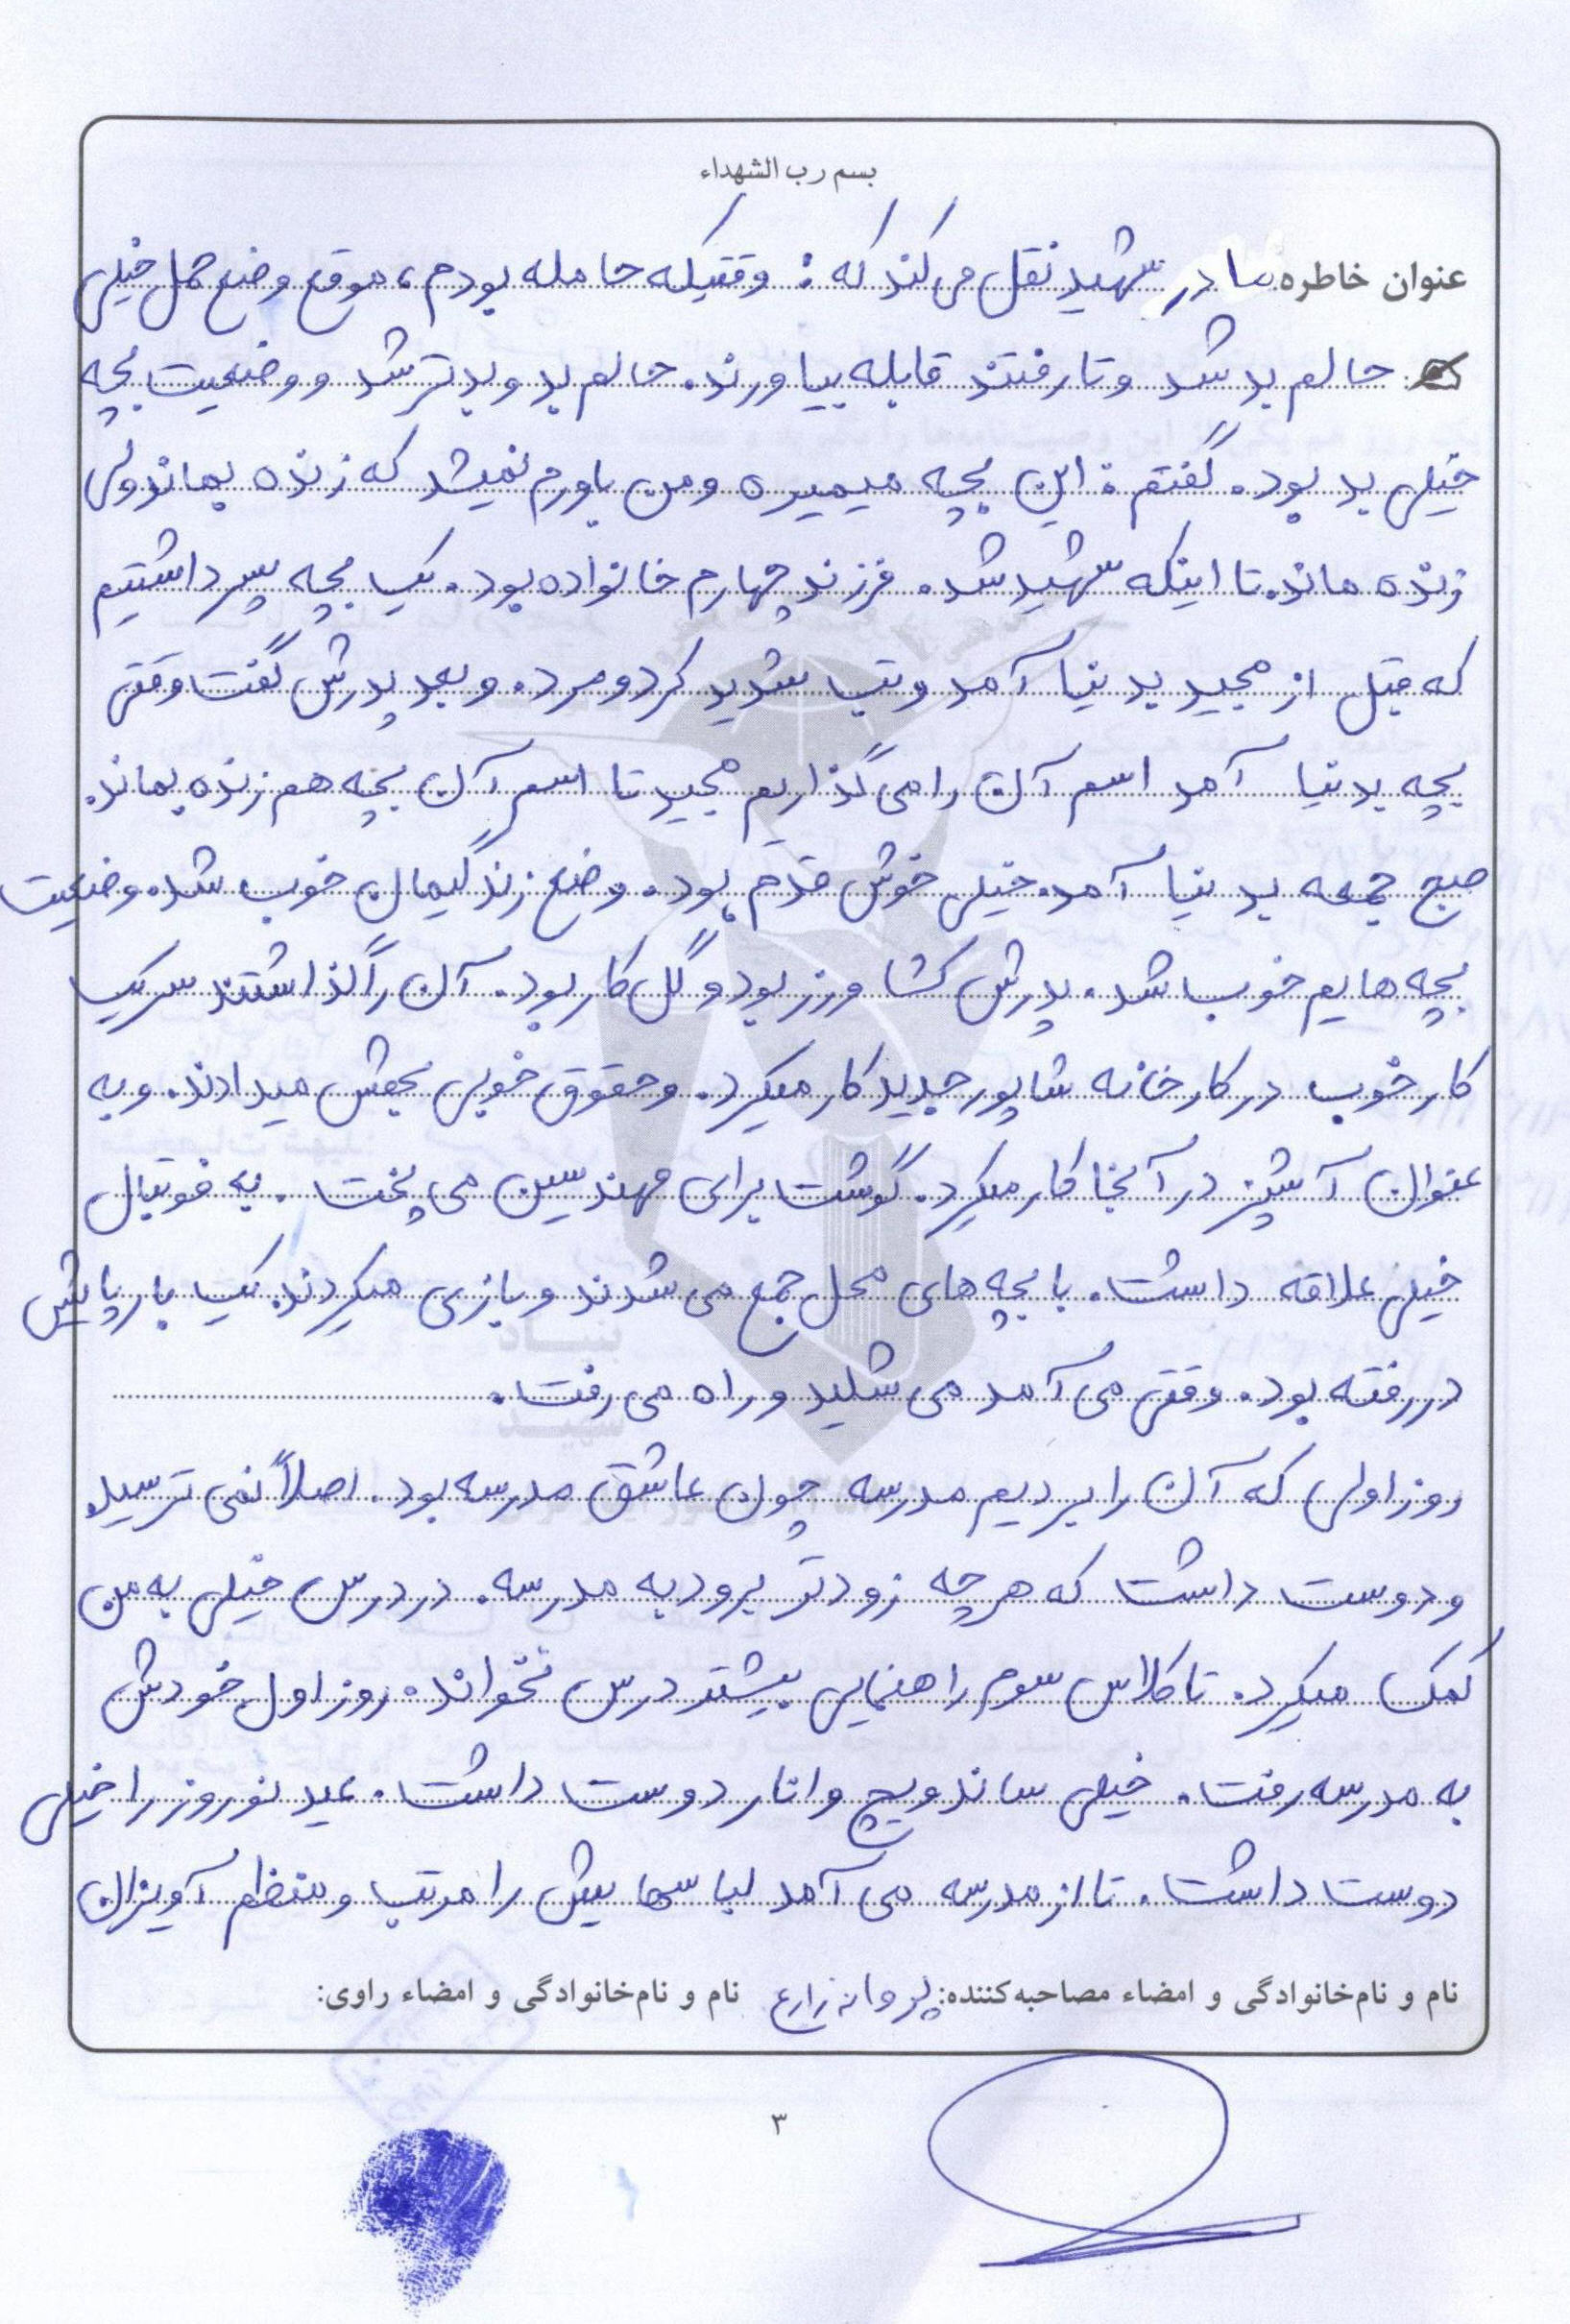 بسم رب الشهداء
عنوان خاطره مادر شهید نقل می کند که : وقتیکه حامله بودم، موقع وضع حمل خیلی
حالم بد شد و تا رفتند قابله بیاورند. حالم بد و بدتر شد و وضعیت بچه
خیلی بد بود. گفتم: این بچه میمیره و من باورم نمیشد که زنده بماند ولی
زنده ماند. تا اینکه شهید شد. فرزند چهارم خانواده بود. یک بچه پسر داشتیم
که قبل از مجید بدنیا آمد و تب شدید کرد و مرد. و بعد پدرش گفت وقتی
بچه بدنیا آمد اسم آن را می گذاریم مجید تا اسم آن بچه هم زنده بماند.
صبح جمعه بدنیا آمد. خیلی خوش قدم بود. وضع زندگیمان خوب شد. وضعیت
بچه هایم خوب شد. پدرش کشاورز بود و گل کار بود. آن را گذاشتند سر یک
کار خوب در کارخانه شاپور جدید کار میکرد. و حقوق خوبی بهش میدادند. و به
عنوان آشپز در آنجا کار میکرد. گوشت برای مهندسین می پخت. به فوتبال
خیلی علاقه داشت. با بچه های محل جمع می شدند و بازی میکردند. یک بار پایش
در رفته بود. وقتی می آمد می شلید و راه می رفت.
روز اولی که آن را بردیم مدرسه چون عاشق مدرسه بود. اصلاً نمی ترسید
و دوست داشت که هر چه زودتر برود به مدرسه. در درس خیلی به من
کمک میکرد. تا کلاس سوم راهنمایی بیشتر درس نخواند. روز اول خودش
به مدرسه رفت. خیلی ساندویچ و انار دوست داشت. عید نوروز را خیلی
دوست داشت. تا از مدرسه می آمد لباسهایش را مرتب و منظم آویزان
نام و نام‌خانوادگی و امضاء مصاحبه‌کننده: پروانه زارع نام و نام‌خانوادگی و امضاء راوی:
۳